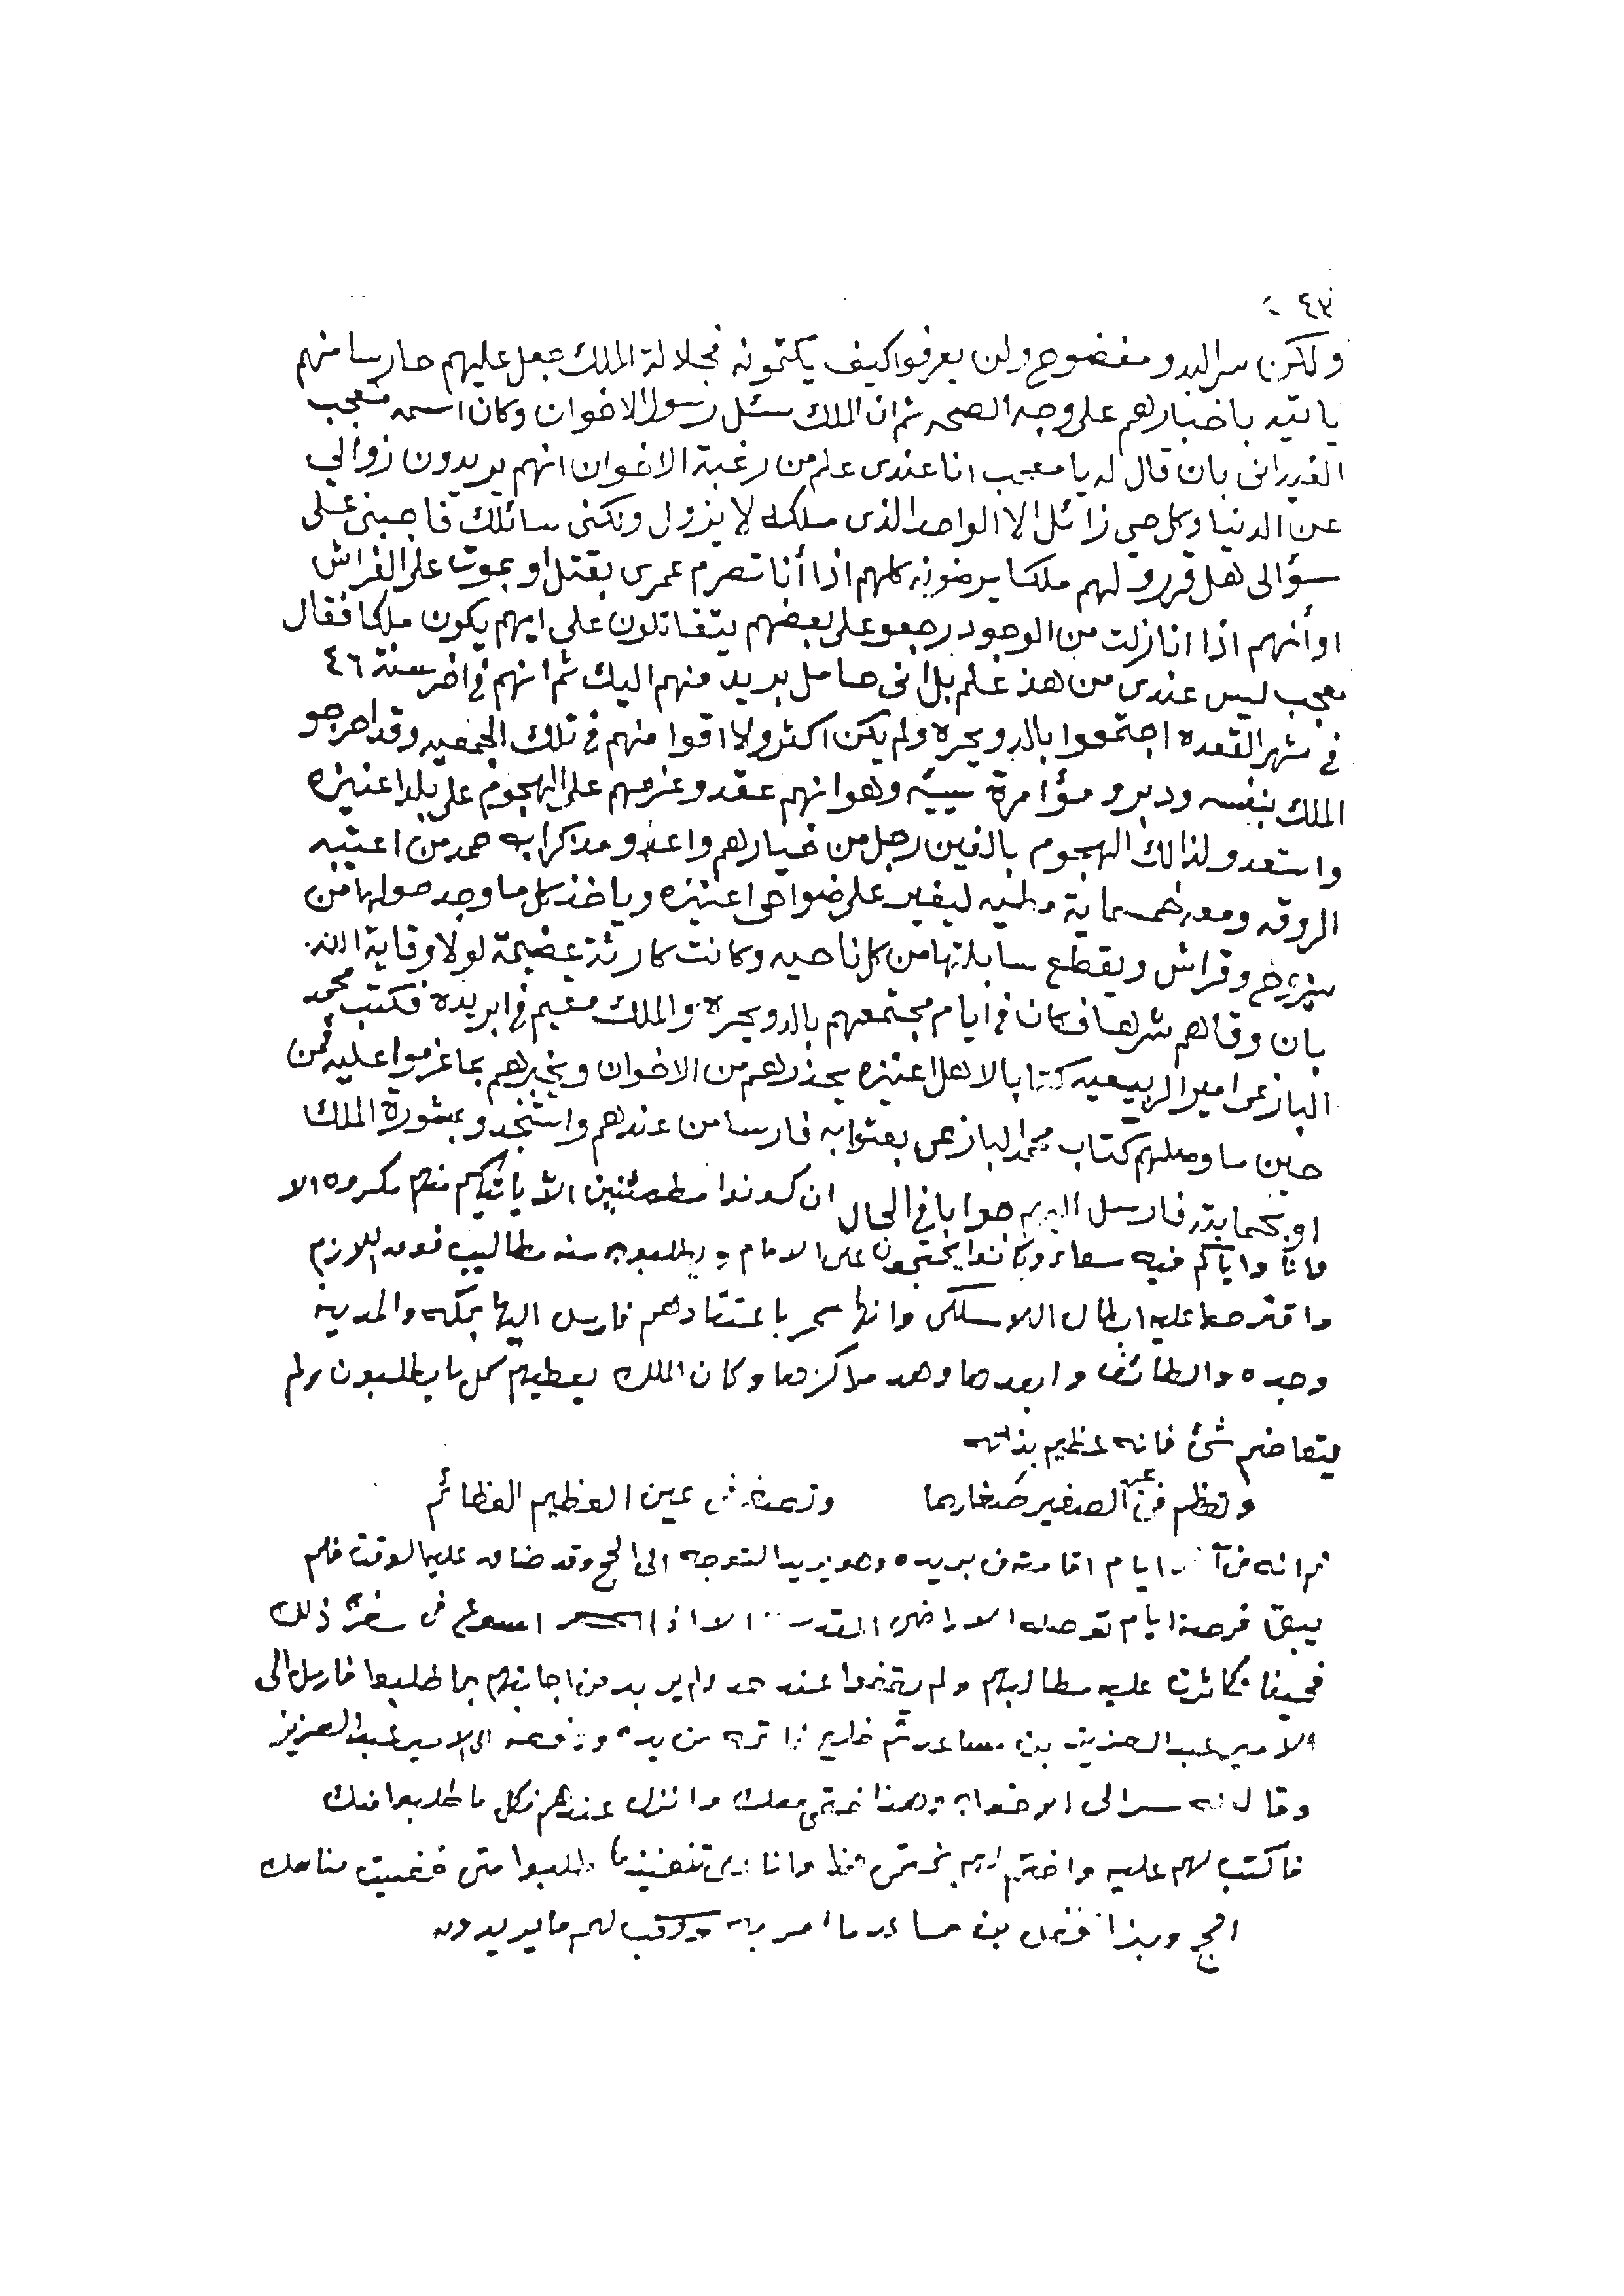 ٤٣
ولكن سر البدو مفضوح ولن يعرفوا كيف يكتمونه فجلالة الملك جعل عليهم حارسا منهم
ياتيه باخبارهم على وجه الصحه ثم ان الملك سئل رسول الاخوان وكان اسمه معجب
الغيداني بان قال له يا معجب انا عندي علم من رغبة الاخوان انهم يريدون زوالي
عن الدنيا وكل حي زائل الا الواحد الذي ملكه لا يزول ولكني سائلك فاجبني على
سؤالي هل قررو لهم ملكا يرضونه كلهم اذا أنا تصرم عمري بقتل او بموت على الفراش
او أنهم اذا انا زلت من الوجود رجعو على بعضهم يتقاتلون على ايهم يكون ملكا فقال
معجب ليس عندي من هذ علم بل اني حامل بريد منهم اليك ثم انهم في اخر سنة ٤٦
في شهر القعده اجتمعوا بالدويحره ولم يكن اكثر ولا اقوا منهم في تلك الجمعيه وقد احرجو
الملك بنفسه ودبرو مؤامرة سيئه وهو انهم عقدو عزمهم على الهجوم على بلد اعنيزه
واستعدو لذالك الهجوم بالفين رجل من خيارهم واعدو مذكرا به حمد من اعتيبه
الروقه ومعه خمسماية مطيه ليغير على ضواحي اعنيزه وياخذ كل ما وجد حولها من
وفراش ويقطع سابلتها من كل ناحيه وكانت كارثة عضيمة لولا وقاية الله
بان وقاهم شرها فكان في ايام مجتمعهم بالدويحره والملك مقيم في ابريده فكتب محمد
البازعي امير الربيعيه كتابا لاهل اعنيزه يحذرهم من الاخوان ويخبرهم بما عزموا عليه فمن
حين ما وصلهم كتاب محمد البازعي بعثوا به فارسا من عندهم واستنجدو بمشورة الملك
او بحمايته فارسل اليهم جوابا في الحال ان كونوا مطمئنين الا ياتيكم منهم مكروه الا
وانا واياكم فيه سواء وكانوا يحتجون على الامام ويطلبون منه مطاليب فوق اللازم
واقترحوا عليه ابطال اللاسلكي وانها سحر باعتقادهم فارسل اليها بمكه والمدينه
وجده والطائف وابعدها وهد مراكزها وكان الملك يعطيهم كل ما يطلبون ولم
يتعاضم شئ فانه عظيم بذاته
وتعظم في عين الصغير صغارها وتصغر في عين العظيم العظائم
ثم انه في آخر ايام اقامته في بريده وهو يريد التوجه الى الحج وقد ضاق عليه الوقت فلم
يبق فرصة ايام توصله الاراضي المقدسه الا اذا اسرع في سفره ذلك
فحينما تكاثرت عليه مطالبهم ولم يقفوا عند حد ولم ير بد من اجابتهم بما طلبوا فارسل الى
الامير عبد العزيز بن مساعد ثم خلع خاتمه من يده ودفعه الى الامير عبد العزيز
وقال له سر الى الاخوان وهذا ختمي معك وانزل عندهم فكل ما طلبوا منك
فاكتب لهم عليه واختم لهم بختمي هذا وانا ارى تنفيذ ما طلبوا متى قضيت مناسك
الحج وبهذا فعل بن مساعد ما امر به وكتب لهم ما يريدون